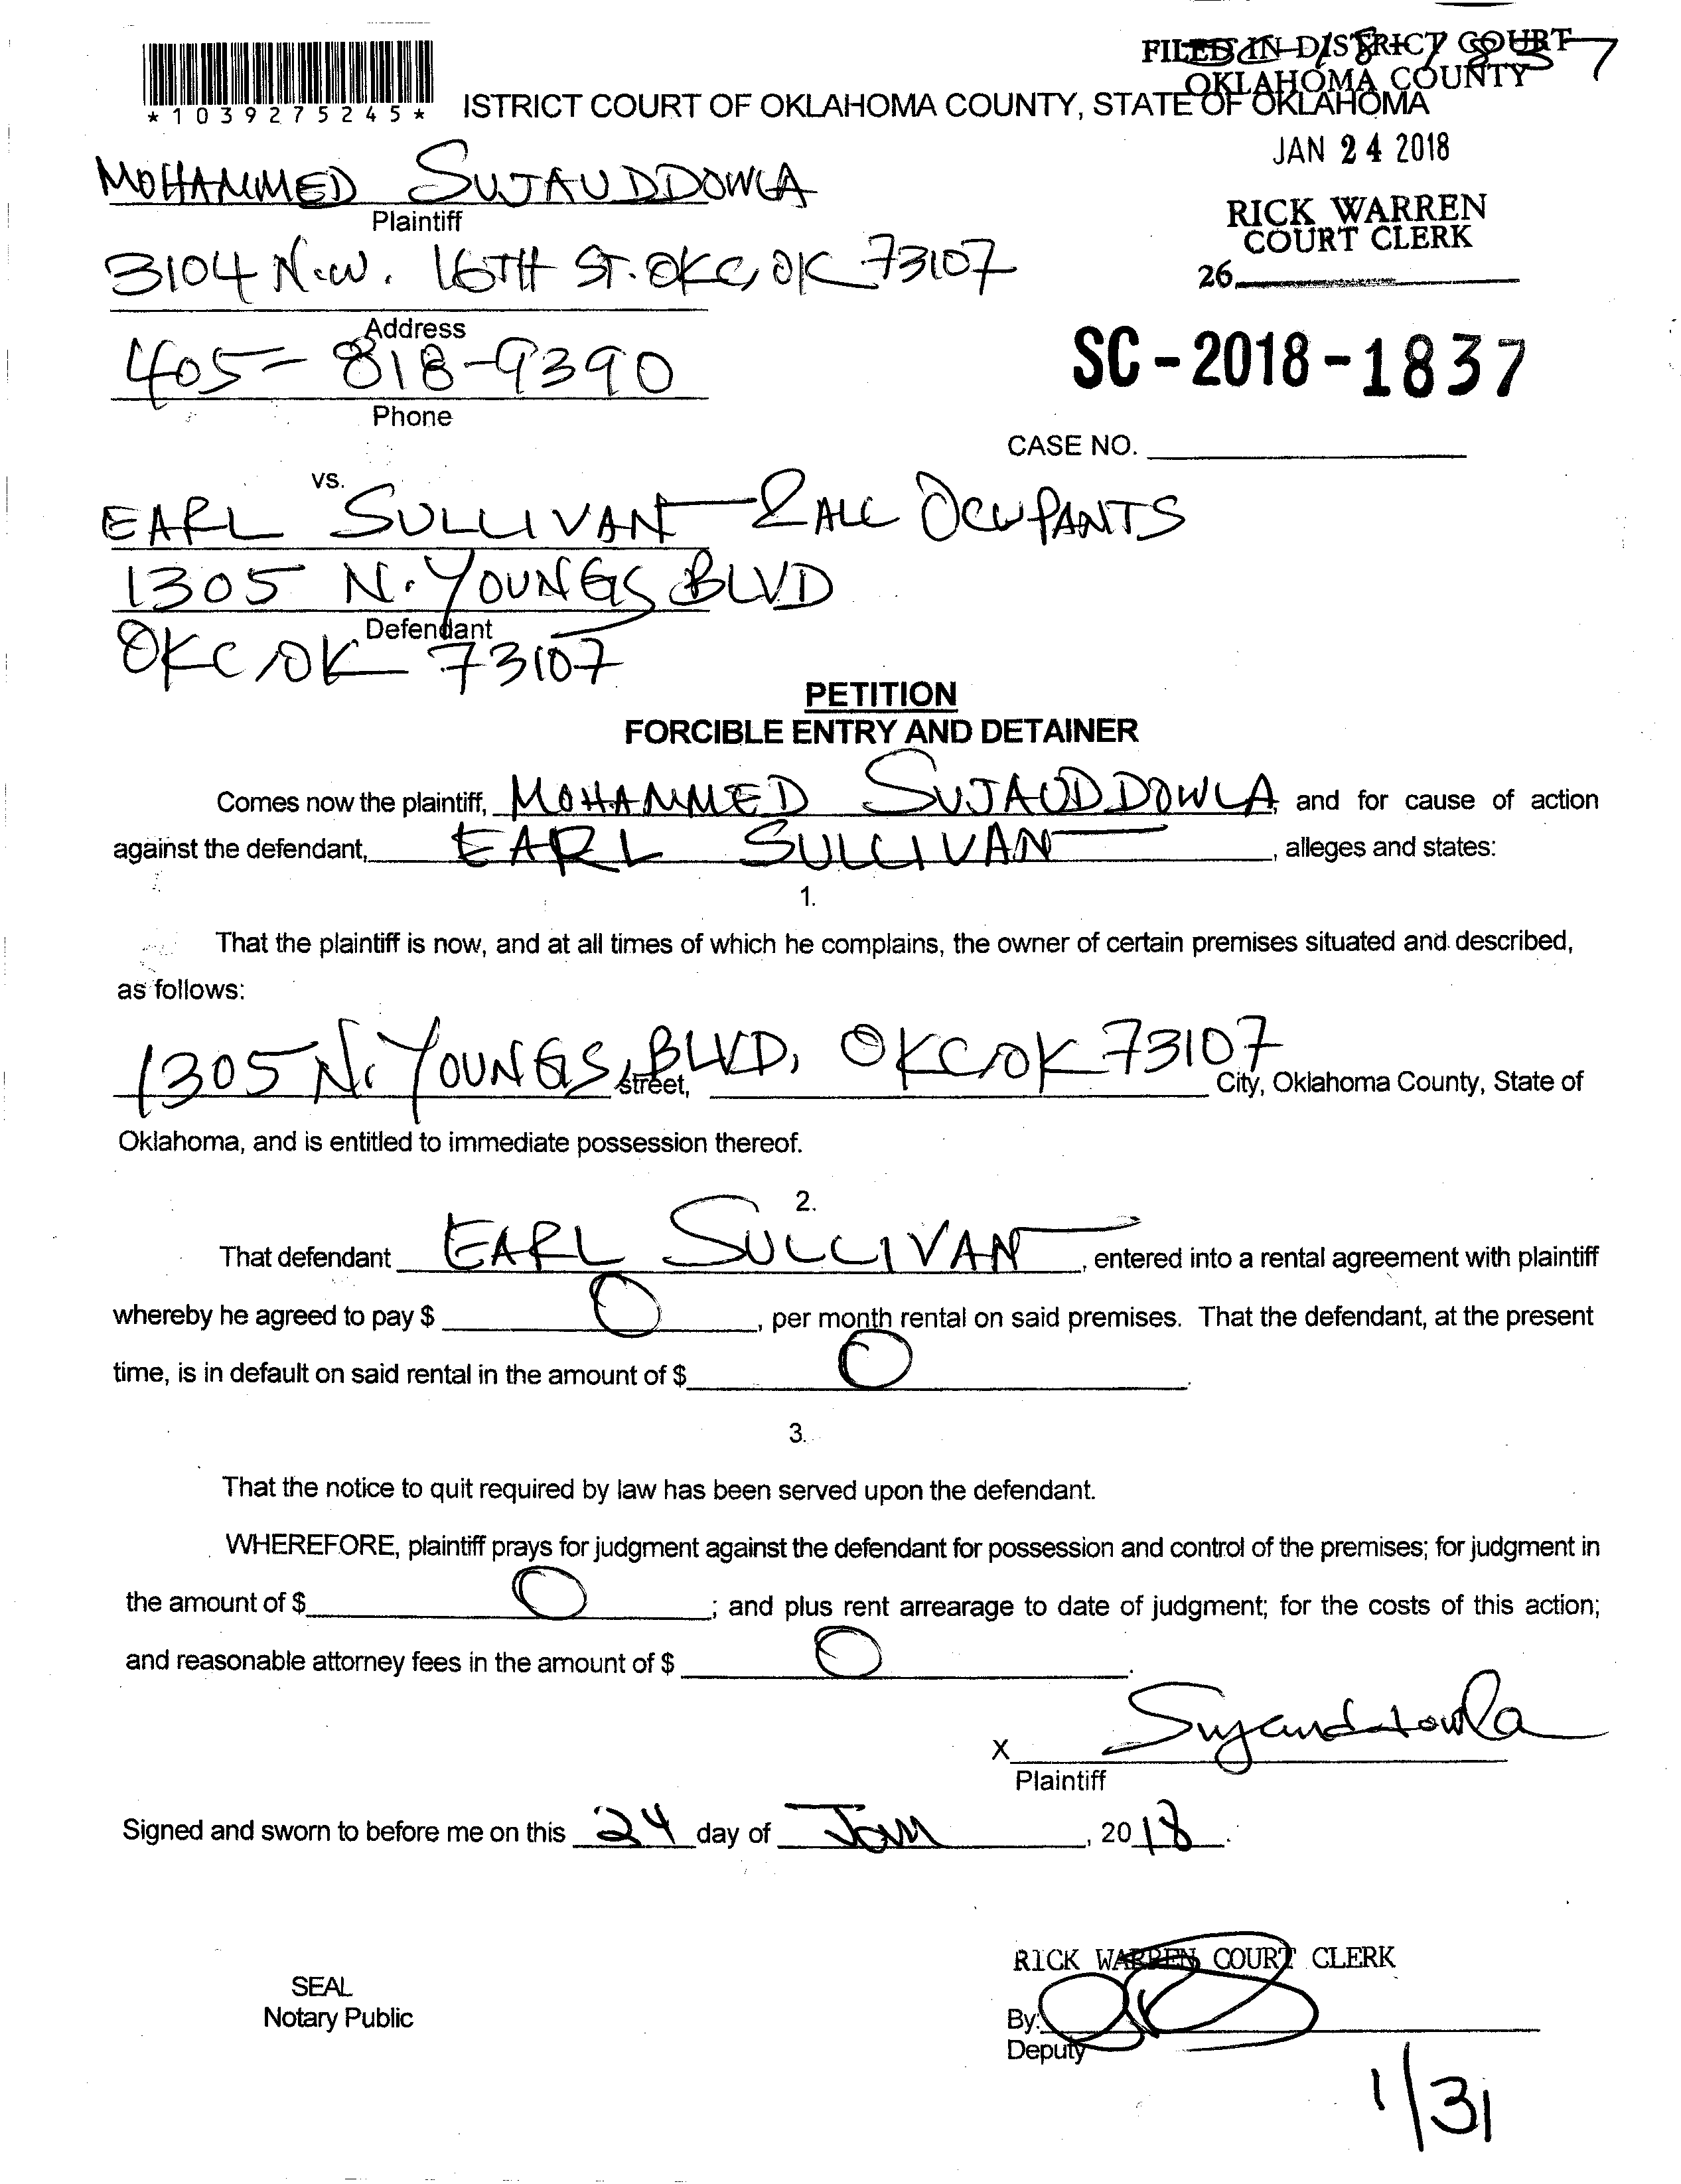 SC-18-1837
FILED IN DISTRICT COURT
OKLAHOMA COUNTY
*1039275245*
ISTRICT COURT OF OKLAHOMA COUNTY, STATE OF OKLAHOMA
JAN 24 2018
MOHAMMED SUJAUDDOWLA
Plaintiff
RICK WARREN
COURT CLERK
3104 N.W. 16TH ST. OKC, OK 73107
26
Address
405-818-9390
Phone
SC-2018-1837
CASE NO.
vs.
EARL SULLIVAN & ALL OCUPANTS
1305 N. YOUNGS BLVD
Defendant
OKC, OK 73107
PETITION
FORCIBLE ENTRY AND DETAINER
Comes now the plaintiff, MOHAMMED SUJAUDDOWLA, and for cause of action
against the defendant, EARL SULLIVAN, alleges and states:
1.
That the plaintiff is now, and at all times of which he complains, the owner of certain premises situated and described,
as follows:
1305 N. YOUNGS BLVD, OKC, OK 73107
street, City, Oklahoma County, State of
Oklahoma, and is entitled to immediate possession thereof.
2.
That defendant EARL SULLIVAN, entered into a rental agreement with plaintiff
whereby he agreed to pay $ 0, per month rental on said premises. That the defendant, at the present
time, is in default on said rental in the amount of $ 0.
3.
That the notice to quit required by law has been served upon the defendant.
WHEREFORE, plaintiff prays for judgment against the defendant for possession and control of the premises; for judgment in
the amount of $ 0; and plus rent arrearage to date of judgment; for the costs of this action;
and reasonable attorney fees in the amount of $ 0.
X Sujauddowla
Plaintiff
Signed and sworn to before me on this 24 day of Jan, 2018.
RICK WARREN COURT CLERK
SEAL
Notary Public
By:
Deputy
1/31